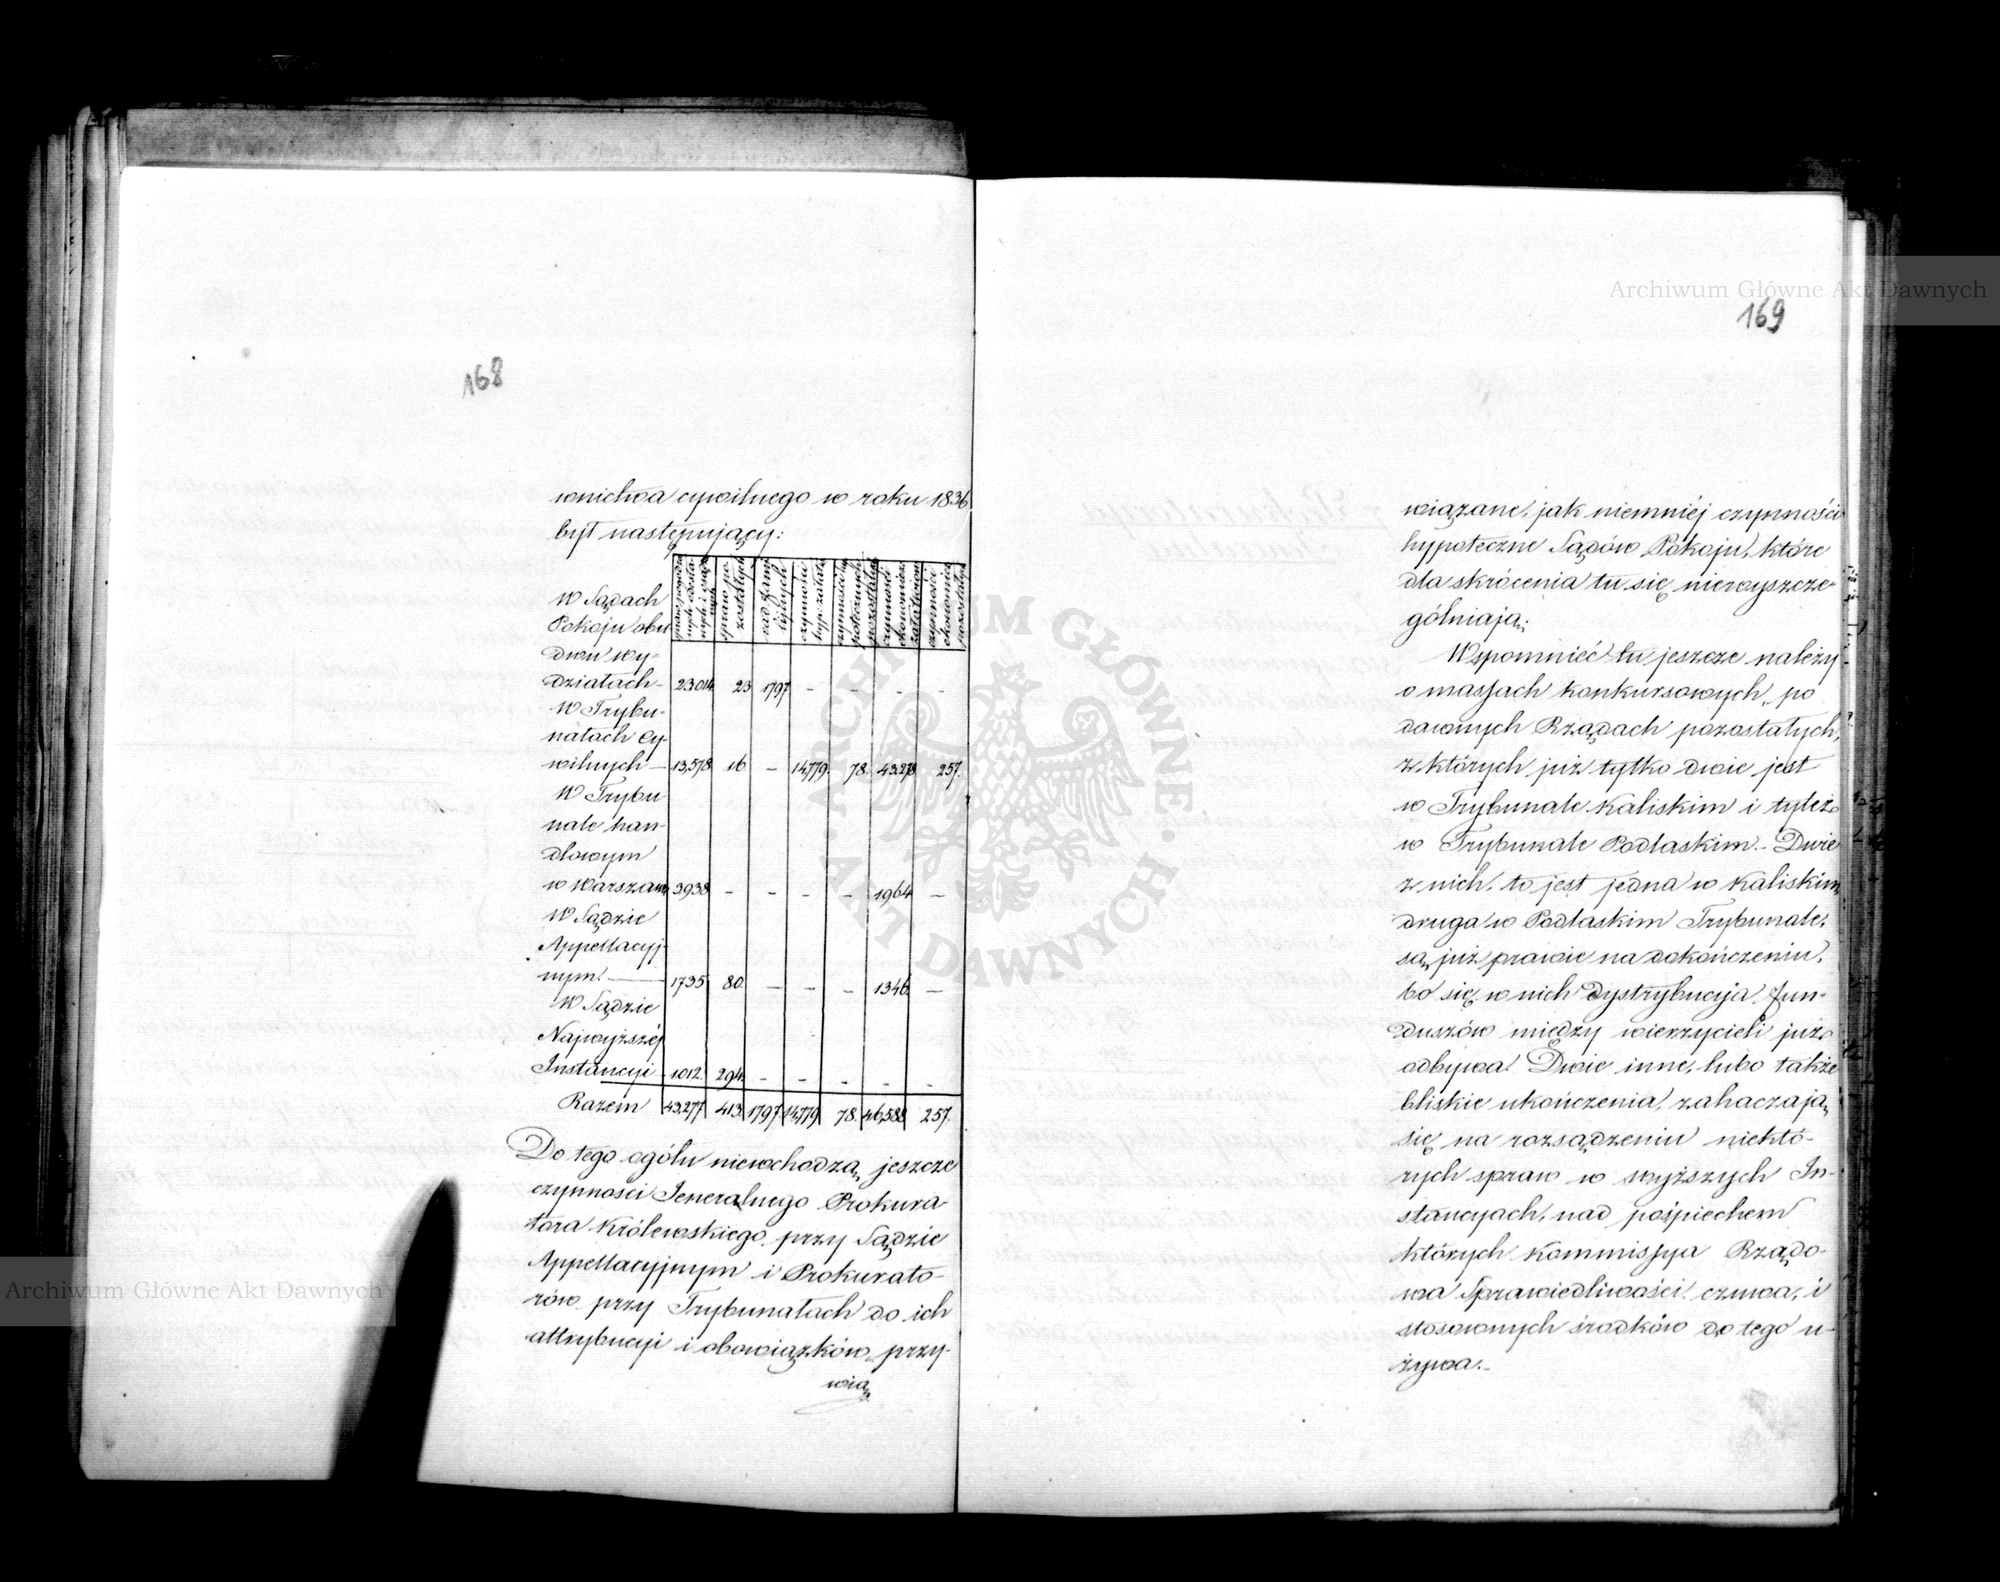 168
wnictwa cywilnego w roku 1836
był następujący:
spraw po-
zostałych
czynności
hyp: załat:
czynności
pozostałych
czynności
ekonomicz:
załatwion:
czynności
ekonomicz:
pozostałych
W Sądach
Pokoju obu
dwu wy-
działach - 23014 23 1797 - - - -
W Trybu-
nałach Cy-
wilnych - 13,578 16 - 14,779. 78. 43278 257.
W Trybu-
nale han-
dlowym
w Warszawie 3938 - - - - 1964 -
W Sądzie
Appellacyj-
nym. - 1735 80. - - - 1346. -
W Sądzie
Najwyższéj
Instancyi - 1012. 294. - - - - -
Razem 43,277 413 1797 14,779 78. 46,588 257.
Do tego ogółu niewchodzą jeszcze
czynności Jeneralnego Prokura-
tora Królewskiego przy Sądzie
Appellacyjnym i Prokurato-
rów przy Trybunałach do ich
attrybucyi i obowiązków przy-
wią
169
wiązane, jak niemniéj czynności
hypoteczne Sądów Pokoju, które
dla skrócenia tu się niewyszcze-
gólniają.
Wspomnieć tu jeszcze należy
o massach konkursowych, po
dawnych Rządach pozostałych,
z których już tylko dwie jest
w Trybunale Kaliskim i tyleż
w Trybunale Podlaskim. - Dwie
z nich, to jest jedna w Kaliskim,
druga w Podlaskim Trybunale,
są już prawie na dokończeniu,
bo się w nich dystrybucyja fun-
duszów między wierzycieli już
odbywa. Dwie inne, lubo także
bliskie ukończenia, zahaczają
się na rozsądzeniu niektó-
rych spraw w wyższych In-
stancyach, nad pośpiechem
których Kommissya Rządo-
wa Sprawiedliwości czuwa, i
stosownych środków do tego u-
żywa. -
Archiwum Główne Akt Dawnych
Archiwum Główne Akt Dawnych
ARCHIWUM GŁÓWNE · AKT DAWNYCH ·